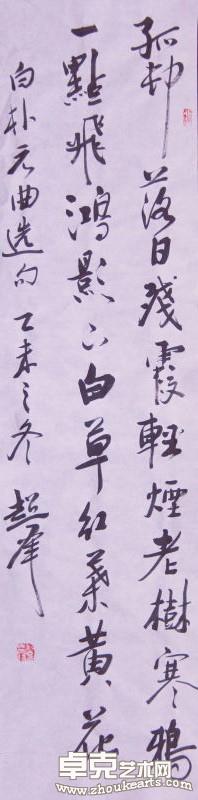 孤邨落日殘霞輕煙老樹寒鴉
一點飛鴻影下白草紅葉黃花
白朴元曲選句 乙未之冬 超峰
卓克艺术网
www.zhoukearts.com